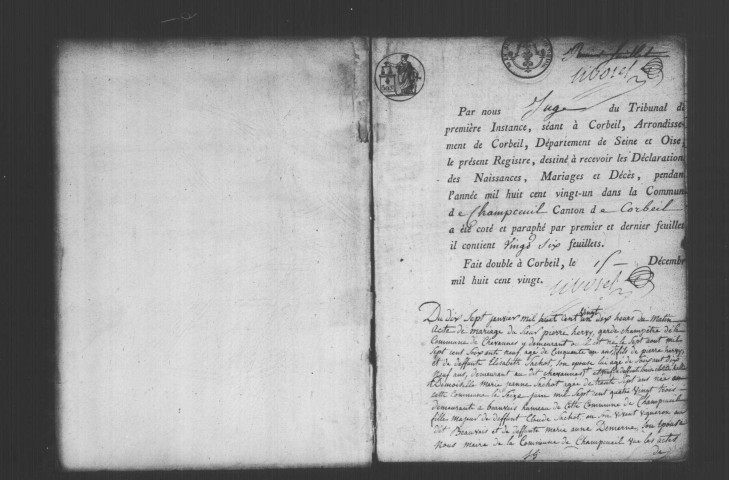 Par nous Juge du Tribunal de
première Instance, séant à Corbeil, Arrondisse-
ment de Corbeil, Département de Seine et Oise,
le présent Registre, destiné à recevoir les Déclarations
des Naissances, Mariages et Décès, pendant
l'année mil huit cent vingt-un dans la Commune
de Champceuil Canton de Corbeil
a été coté et paraphé par premier et dernier feuillet
il contient vingt Six feuillets.
Fait double à Corbeil, le 15 Décembre
mil huit cent vingt.
Du dix Sept janvier mil huit cent vingt un dix heures de Matin
Acte de mariage du Sieur pierre hervy, garde champêtre de la
Commune de Chevannes y demeurant né le Sept aout mil
Sept cent Soixante neuf, age de Cinquante un ans fils de pierre hervy,
et de deffunte Elisabeth Sachot, Son epouse
neuf ans, demeurant au dit chevannes
et Demoiselle Marie jeanne Sachot agée de trente Sept ans née en
cette Commune le Seize juin mil Sept cent quatre vingt trois
demeurant a beauvais hameau de cette Commune de Champceuil
fille majeur de deffunt Claude Sachot vivant vigneron au
dit Beauvais et de deffunte marie anne Son épouse
Nous maire de la Commune de Champceuil vu les actes
de